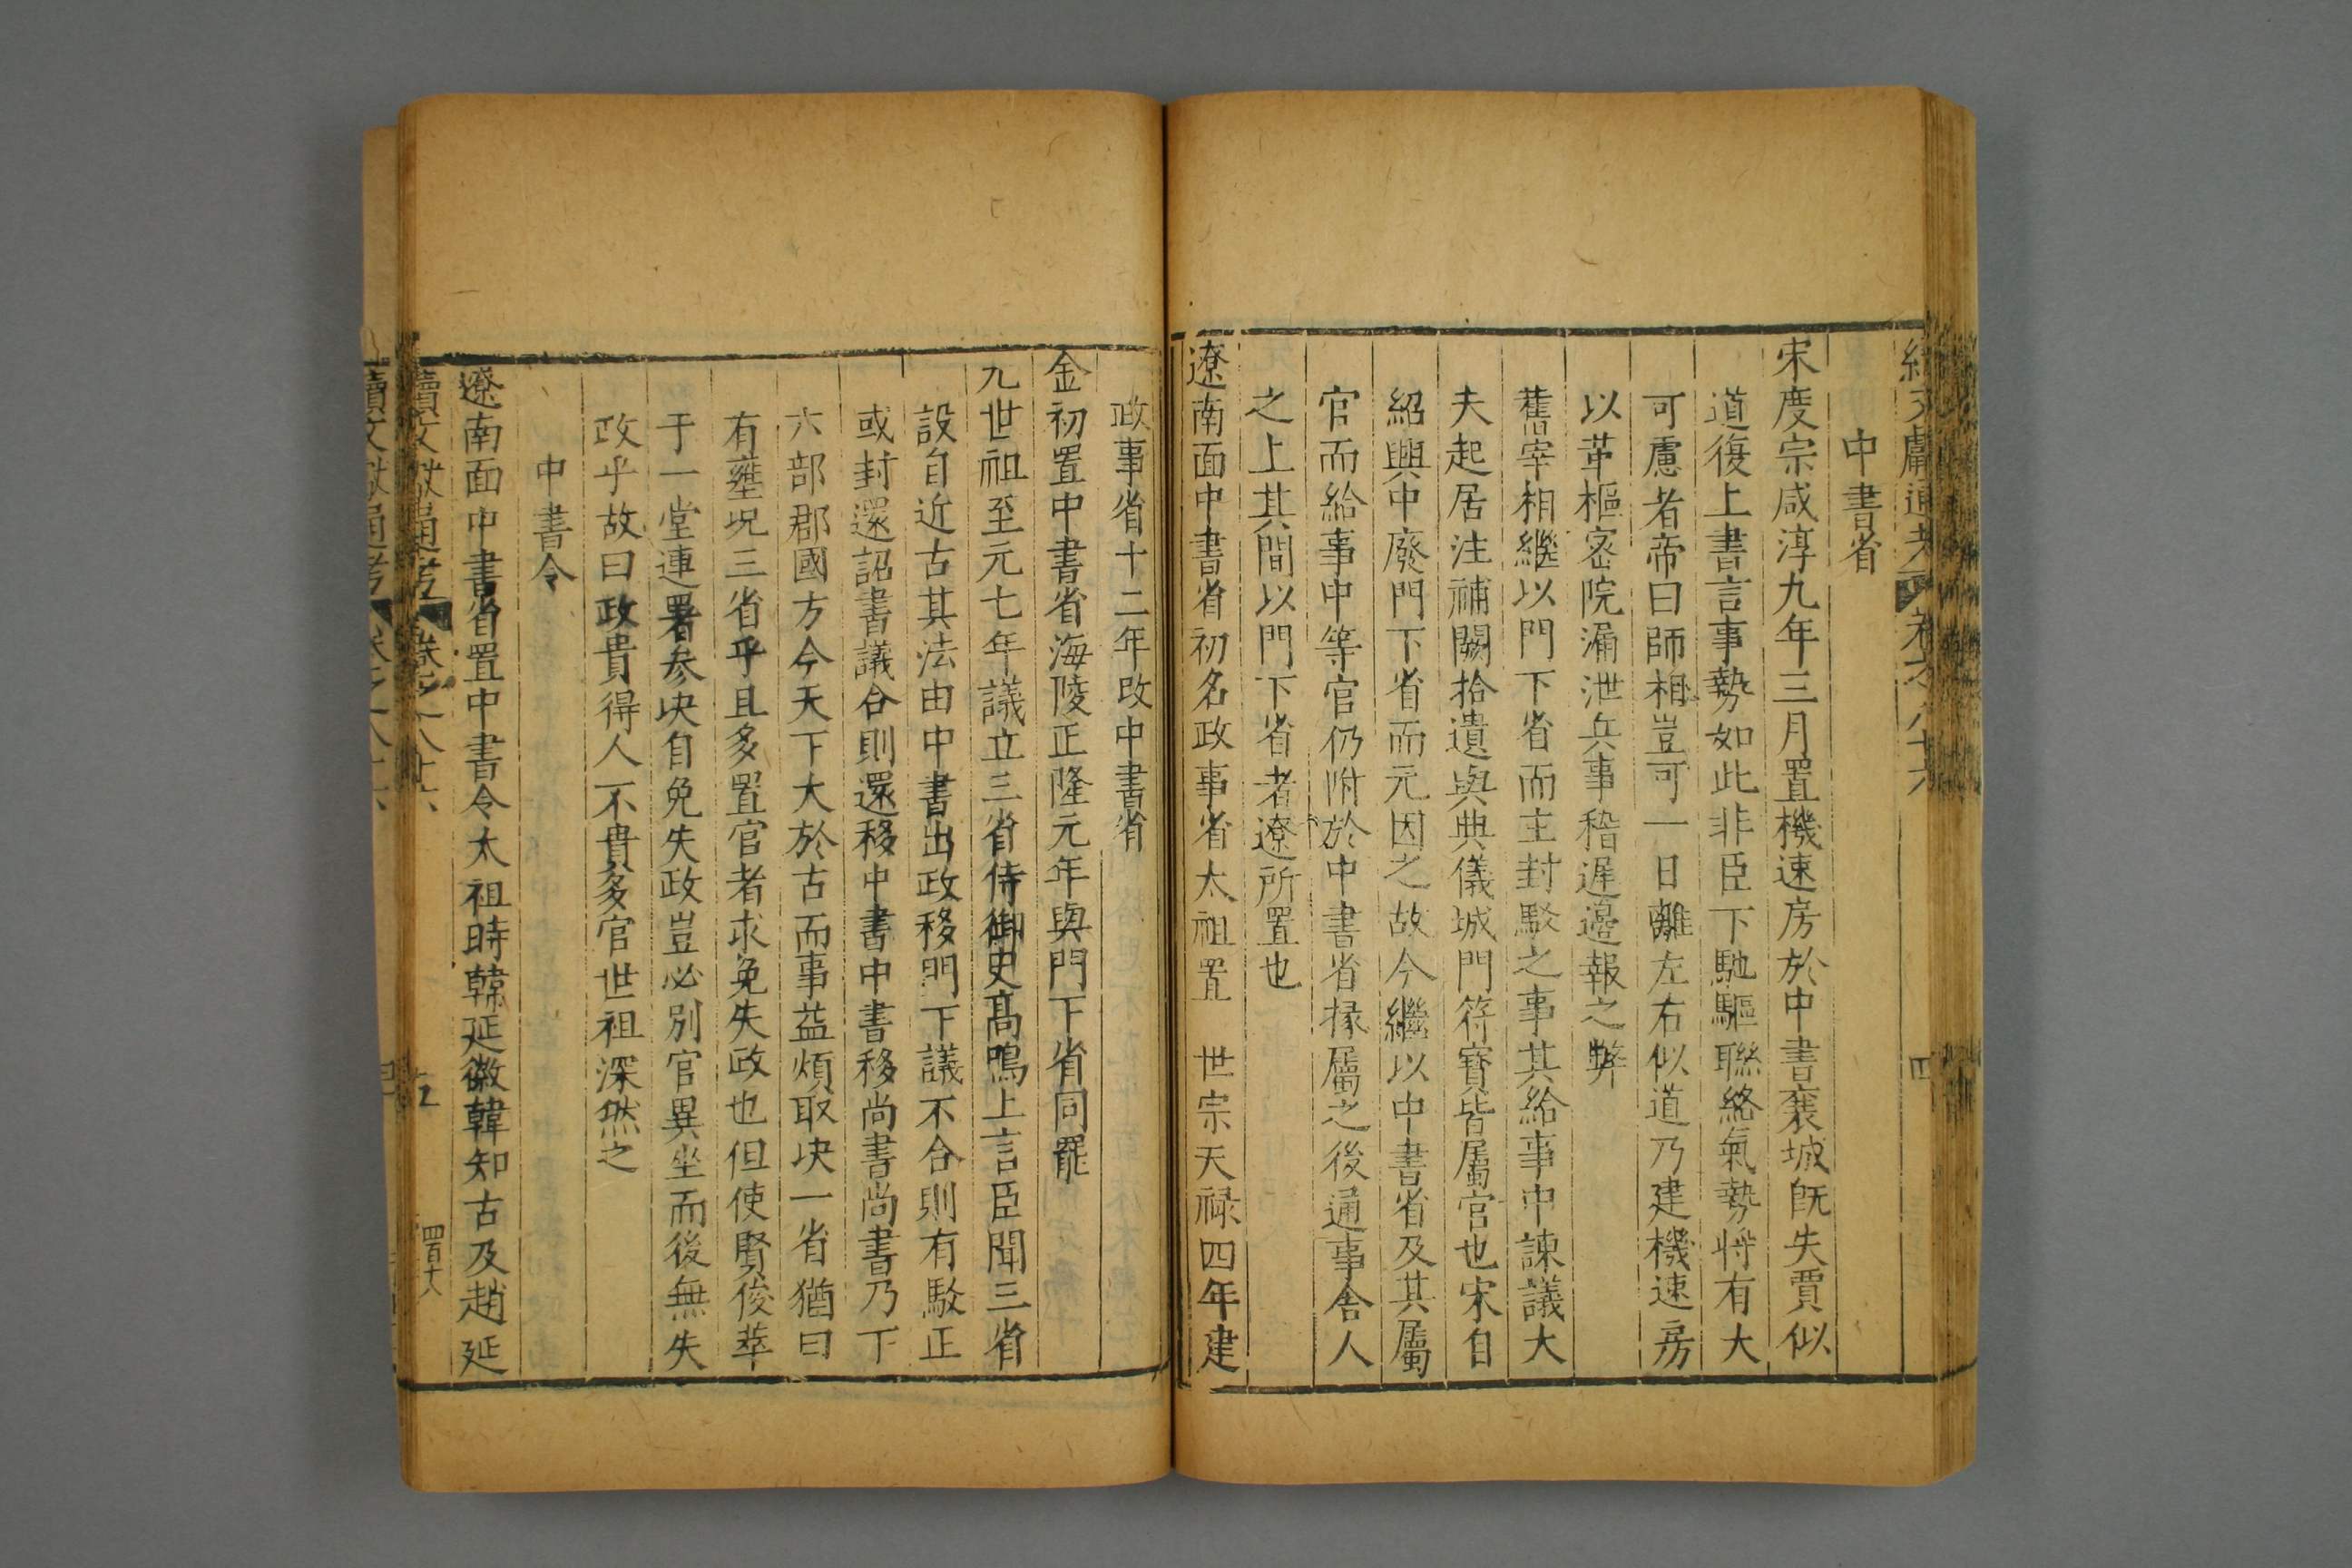 續文獻通考 卷之八十六 四
中書省
宋度宗咸淳九年三月置機速房於中書襄城旣失賈似
道復上書言事勢如此非臣下馳驅聯絡氣勢將有大
可慮者帝曰師相豈可一日離左右似道乃建機速房
以革樞密院漏泄兵事稽遲邉報之弊
舊宰相繼以門下省而主封駁之事其給事中諫議大
夫起居注補闕拾遺與典儀城門符寶皆屬官也宋自
紹興中廢門下省而元因之故今繼以中書省及其屬
官而給事中等官仍附於中書省掾屬之後通事舍人
之上其間以門下省者遼所置也
遼南面中書省初名政事省太祖置 世宗天禄四年建
政事省十二年改中書省
金初置中書省海陵正隆元年與門下省同罷
元世祖至元七年議立三省侍御史髙鳴上言臣聞三省
設自近古其法由中書出政移門下議不合則有駁正
或封還詔書議合則還移中書中書移尚書尚書乃下
六部郡國方今天下大於古而事益煩取决一省猶曰
有壅况三省乎且多置官者求免失政也但使賢俊萃
于一堂連署参决自免失政豈必别官異坐而後無失
政乎故曰政貴得人不貴多官世祖深然之
中書令
遼南面中書省置中書令太祖時韓延徽韓知古及趙延
續文獻通考 卷之八十六 五 四百十八